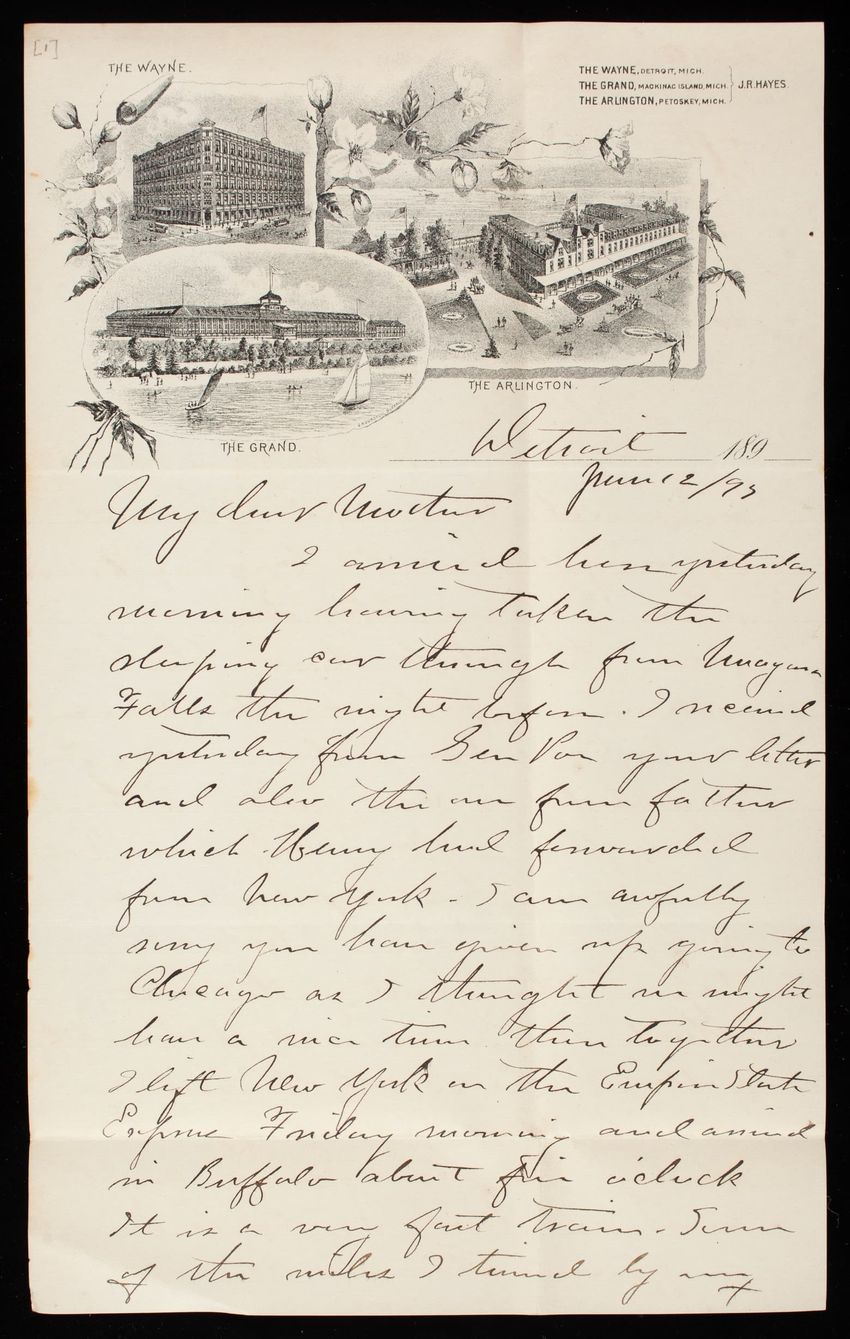 [1]
THE WAYNE.
THE WAYNE, DETROIT, MICH.
THE GRAND, MACKINAC ISLAND, MICH. } J.R. HAYES.
THE ARLINGTON, PETOSKEY, MICH.
THE ARLINGTON.
THE GRAND.
Detroit 189
June 12/93
My dear Mother
I arrived here yesterday
morning having taken the
sleeping car through from Niagara
Falls the night before. I received
yesterday from Gen Poe your letter
and also the one from father
which Henry had forwarded
from New York - I am awfully
sorry you have given up going to
Chicago as I thought we might
have a nice time there together
I left New York on the Empire State
Express Friday morning and arrived
in Buffalo about five o'clock
It is a very fast train. Some
of the miles I timed by my